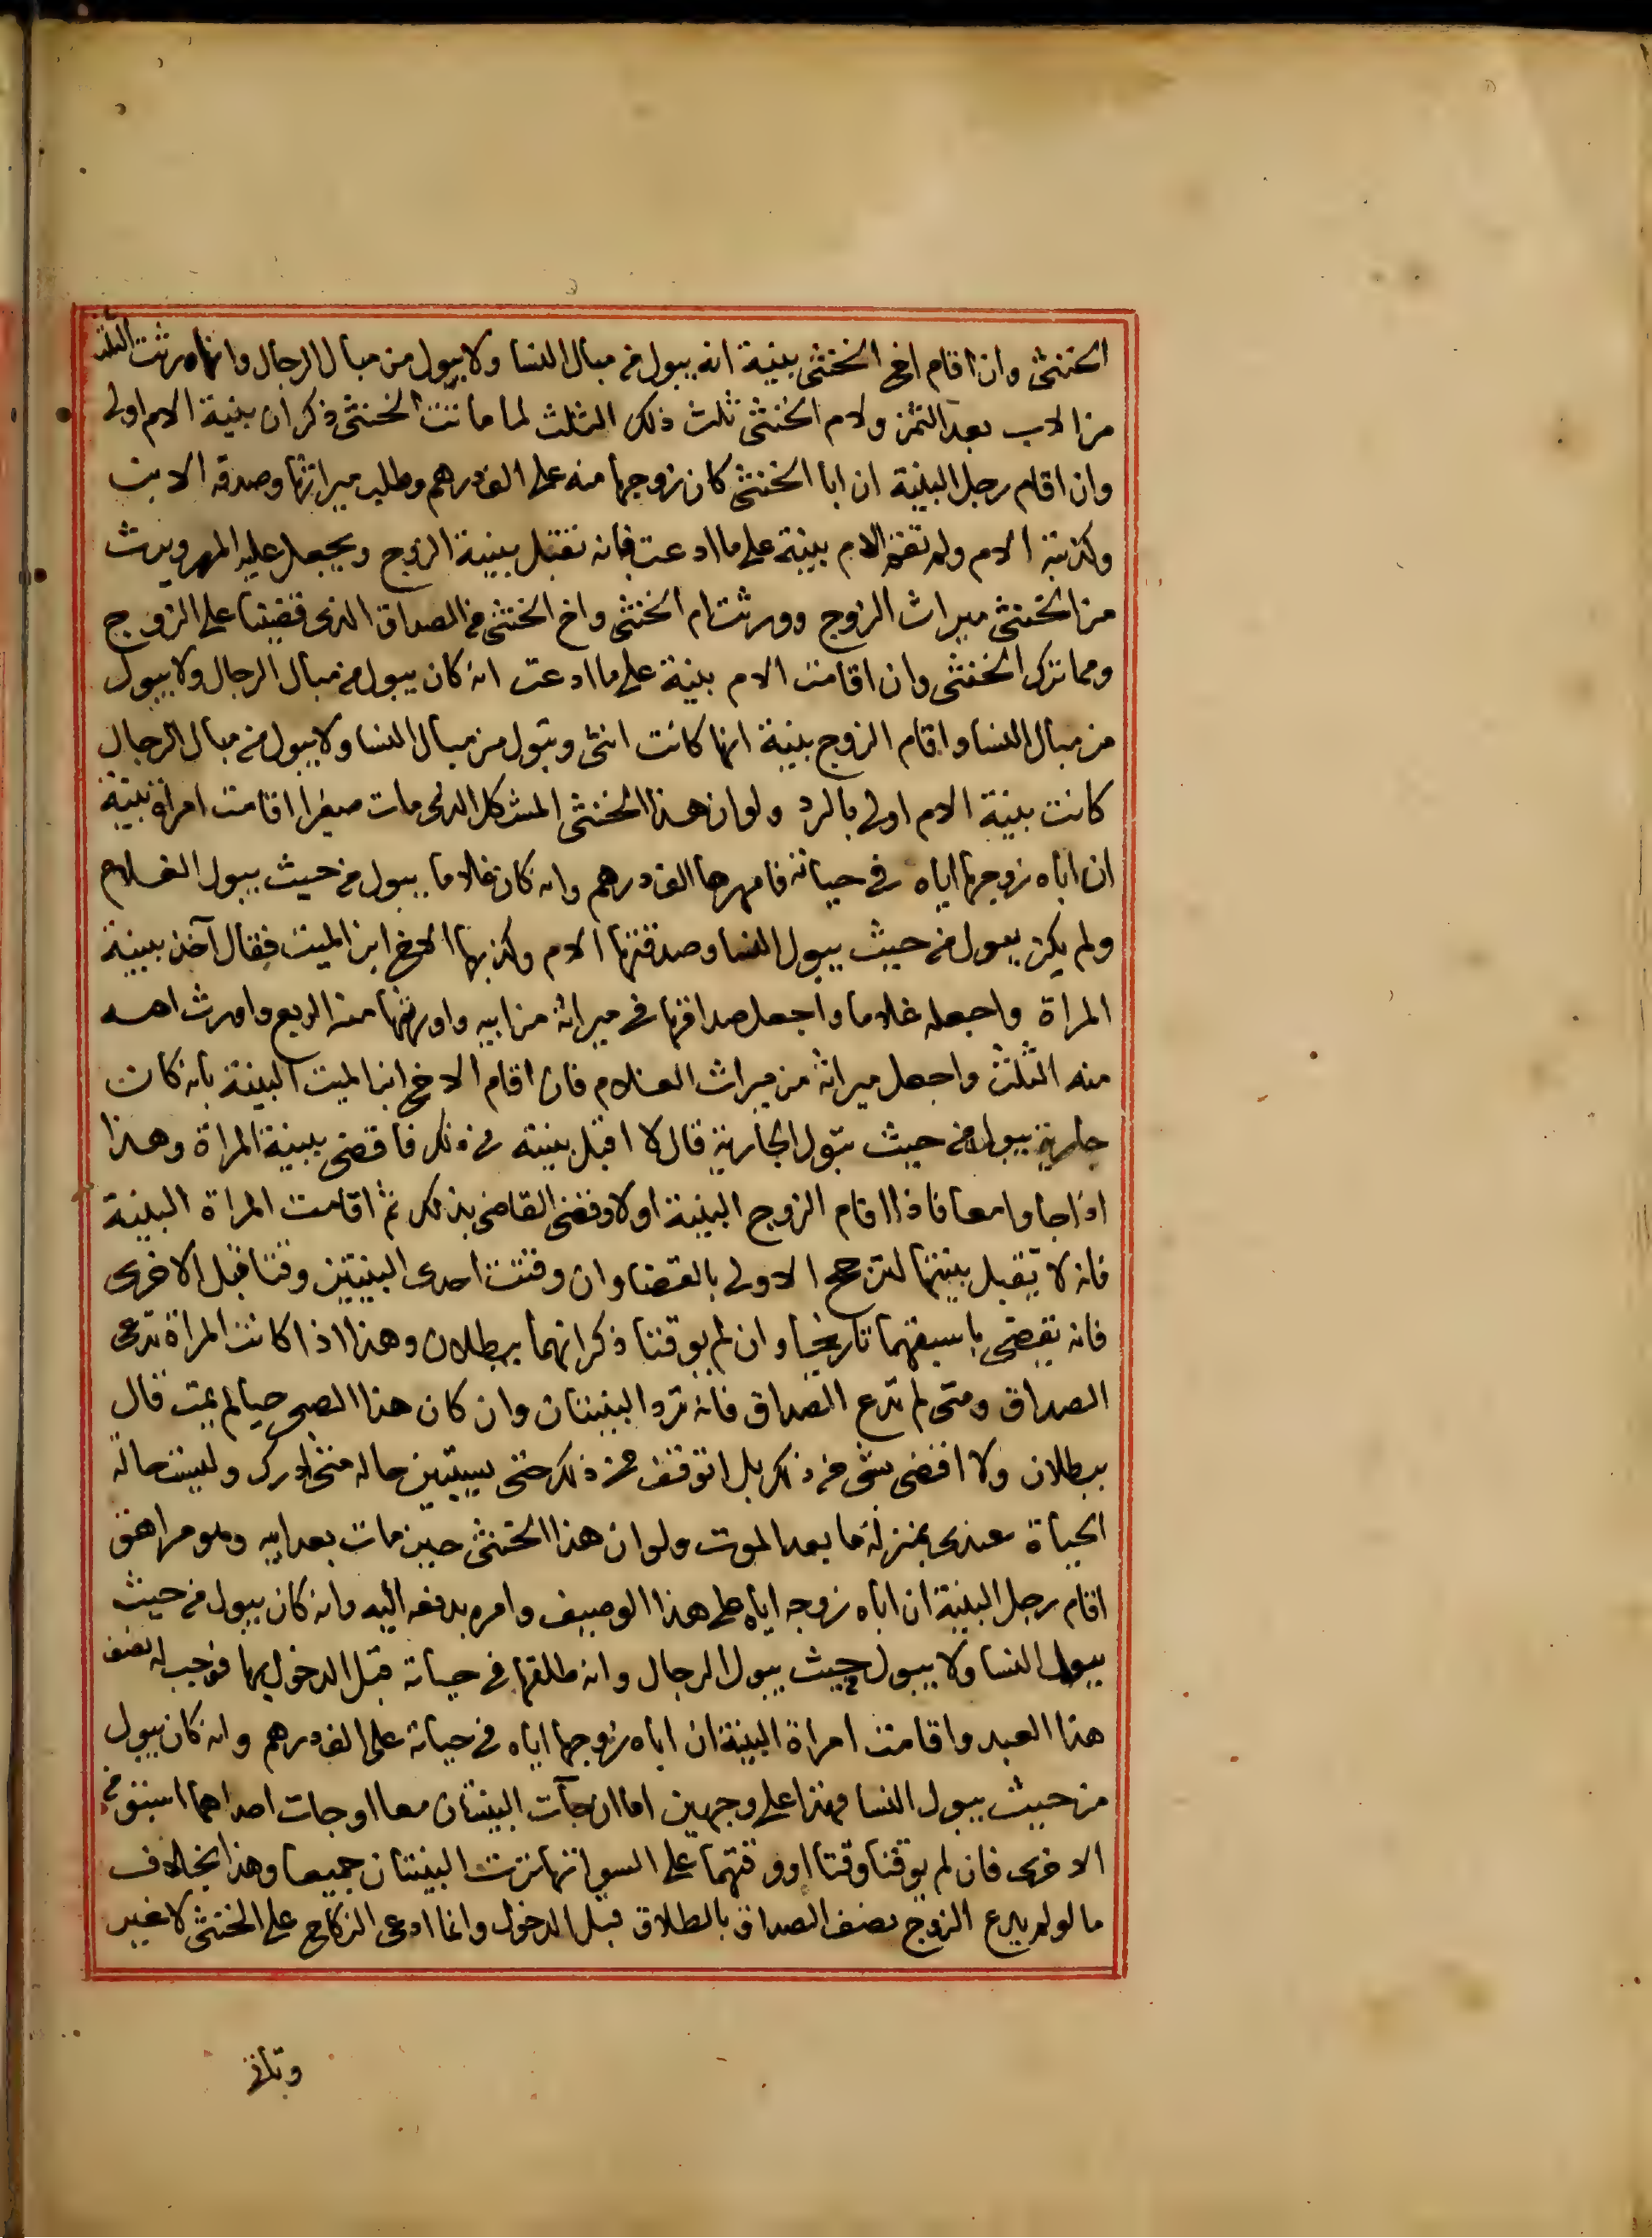 الخنثى وان اقام اخ الخنثى بينة انه يبول من مبال النسا ولا يبول من مبال الرجال وانها ورثت الثلث
من الاب بعد الثمن ولام الخنثى ثلث ذلك الثلث لما ماتت الخنثى ذكر ان بينة الام اولى
وان اقام رجل البينة ان ابا الخنثى كان زوجها منه على الف درهم وطلب ميراثها وصدقه الابن
وكذبته الام ولم تقم الام بينة على ما ادعت فانه تقبل بينة الزوج ويجعل عليه المهر ويرث
من الخنثى ميراث الزوج وورثت ام الخنثى واخ الخنثى من الصداق الذى قضينا على الزوج
ومما ترك الخنثى وان اقامت الام بينة على ما ادعت انه كان يبول من مبال الرجال ولا يبول
من مبال النسا واقام الزوج بينة انها كانت انثى وتبول من مبال النسا ولا يبول من مبال الرجال
كانت بينة الام اولى بالرد ولو ان هذا الخنثى المشكل الذى مات صغيرا اقامت امراة بينة
ان اباه زوجها اياه فى حياته فامهرها الف درهم وانه كان غلاما يبول من حيث يبول الغلام
ولم يكن يبول من حيث يبول النسا وصدقتها الام وكذبها الاخ ابن الميت فقال آخذ ببينة
المراة واجعله غلاما واجعل صداقها فى ميراثه من ابيه واورثها منه الربع واورث امه
منه الثلث واجعل ميراثه من ميراث الغلام فان اقام الاخ ابن الميت البينة بانه كان
جارية يبول من حيث تبول الجارية قال لا اقبل بينته فى ذلك فاقضى ببينة المراة وهذا
اذا جاوا معا فاذا اقام الزوج البينة اولا وقضى القاضى بذلك ثم اقامت المراة البينة
فانه لا يقبل بينتها لترجح الاولى بالقضا وان وقتت احدى البينتين وقتا قبل الاخرى
فانه يقضى باسبقهما تاريخا وان لم يوقتا ذكر انهما يبطلان وهذا اذا كانت المراة تدعى
الصداق ومتى لم تدع الصداق فانه ترد البينتان وان كان هذا الصبى حيا لم يمت قال
يبطلان ولا اقضى بشى من ذلك بل اتوقف من ذلك حتى يستبين حاله متى ادرك وليست حالة
الحياة عندى بمنزلة ما بعد الموت ولو ان هذا الخنثى حين مات بعد ابيه وهو مراهق
اقام رجل البينة ان اباه زوجه اياه على هذا الوصيف وامره بدفعه اليه وانه كان يبول من حيث
يبول النسا ولا يبول حيث يبول الرجال وانه طلقها فى حياته قبل الدخول بها فوجب له نصف
هذا العبد واقامت امراة البينة ان اباه زوجها اياه فى حياته على الف درهم وانه كان يبول
من حيث يبول النسا فهذا على وجهين اما ان جآت البينتان معا او جات احداهما اسبق من
الاخرى فان لم يوقتا وقتا او وقتهما على السوا تهاترت البينتان جميعا وهذا بخلاف
ما لو لم يدع الزوج نصف الصداق بالطلاق قبل الدخول وانما ادعى النكاح على الخنثى لا غير